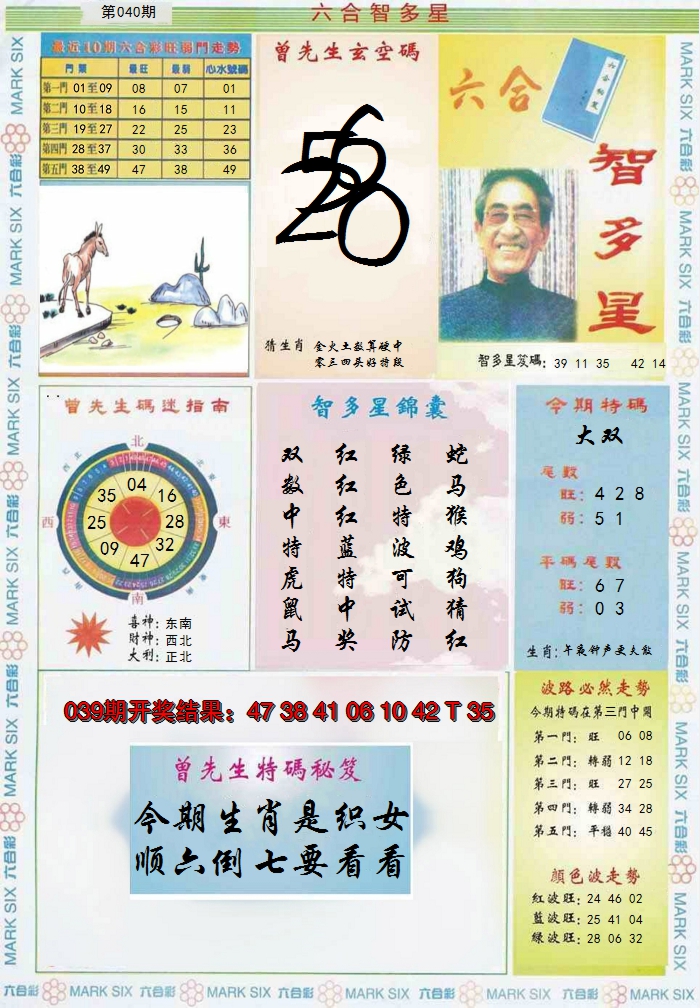 第040期
六合智多星
最近10期六合彩旺弱門走勢
門類 最旺 最弱 心水號碼
第一門 01至09 08 07 01
第二門 10至18 16 15 11
第三門 19至27 22 25 23
第四門 28至37 30 33 36
第五門 38至49 47 38 49
曾先生玄空碼
猜生肖 金火土数算破中
零三四头好特段
六合
智多星
智多星笈碼: 39 11 35 42 14
曾先生碼迷指南
北
西
東
南
04
16
28
32
47
09
25
35
喜神: 东南
财神: 西北
大利: 正北
智多星錦囊
双数中特虎鼠马
红红红蓝特中奖
绿色特波可试防
蛇马猴鸡狗猜红
今期特碼
大双
尾數
旺: 4 2 8
弱: 5 1
平碼尾數
旺: 6 7
弱: 0 3
生肖: 午夜钟声更大散
039期开奖结果: 47 38 41 06 10 42 T 35
曾先生特碼秘笈
今期生肖是织女
顺六倒七要看看
波路必然走勢
今期特碼在第三門中開
第一門: 旺 06 08
第二門: 轉弱 12 18
第三門: 旺 27 25
第四門: 轉弱 34 28
第五門: 平穩 40 45
顏色波走勢
红波旺: 24 46 02
藍波旺: 25 41 04
绿波旺: 28 06 32
六合彩 MARK SIX